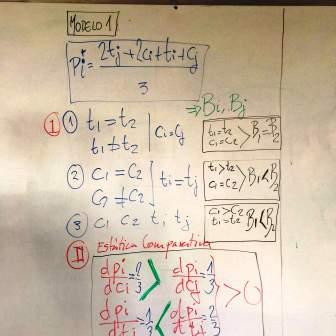 MODELO 1
Pi* = 2tj + 2ci + ti + cj
3
⇒ Bi, Bj
I ① t1 = t2
t1 ≠ t2 | ci = cj
t1 = t2
c1 = c2 > B1 = B2
② c1 = c2
c1 ≠ c2 } ti = tj
t1 > t2
c1 = c2 > B1 < B2
③ c1 c2 ti tj
c1 > c2
t1 = t2 > B1 < B2
II Estática Comparativa
dpi/dci = 2/3 > dpi/dcj = 1/3
> 0
dpi/dti = 1/3 < dpi/dtj = 2/3